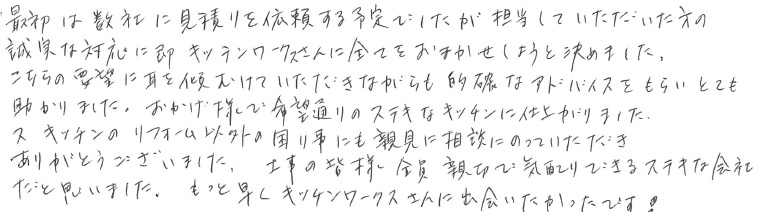 最初は数社に見積りを依頼する予定でしたが担当していただいた方の
誠実な対応に即キッチンワークスさんに全てをおまかせしようと決めました。
こちらの要望に耳を傾むけていただきながらも的確なアドバイスをもらいとても
助かりました。おかげ様で希望通りのステキなキッチンに仕上がりました。
又キッチンのリフォーム以外の困り事にも親身に相談にのっていただき
ありがとうございました。工事の皆様全員親切で気配りできるステキな会社
だと思いました。もっと早くキッチンワークスさんに出会いたかったです!